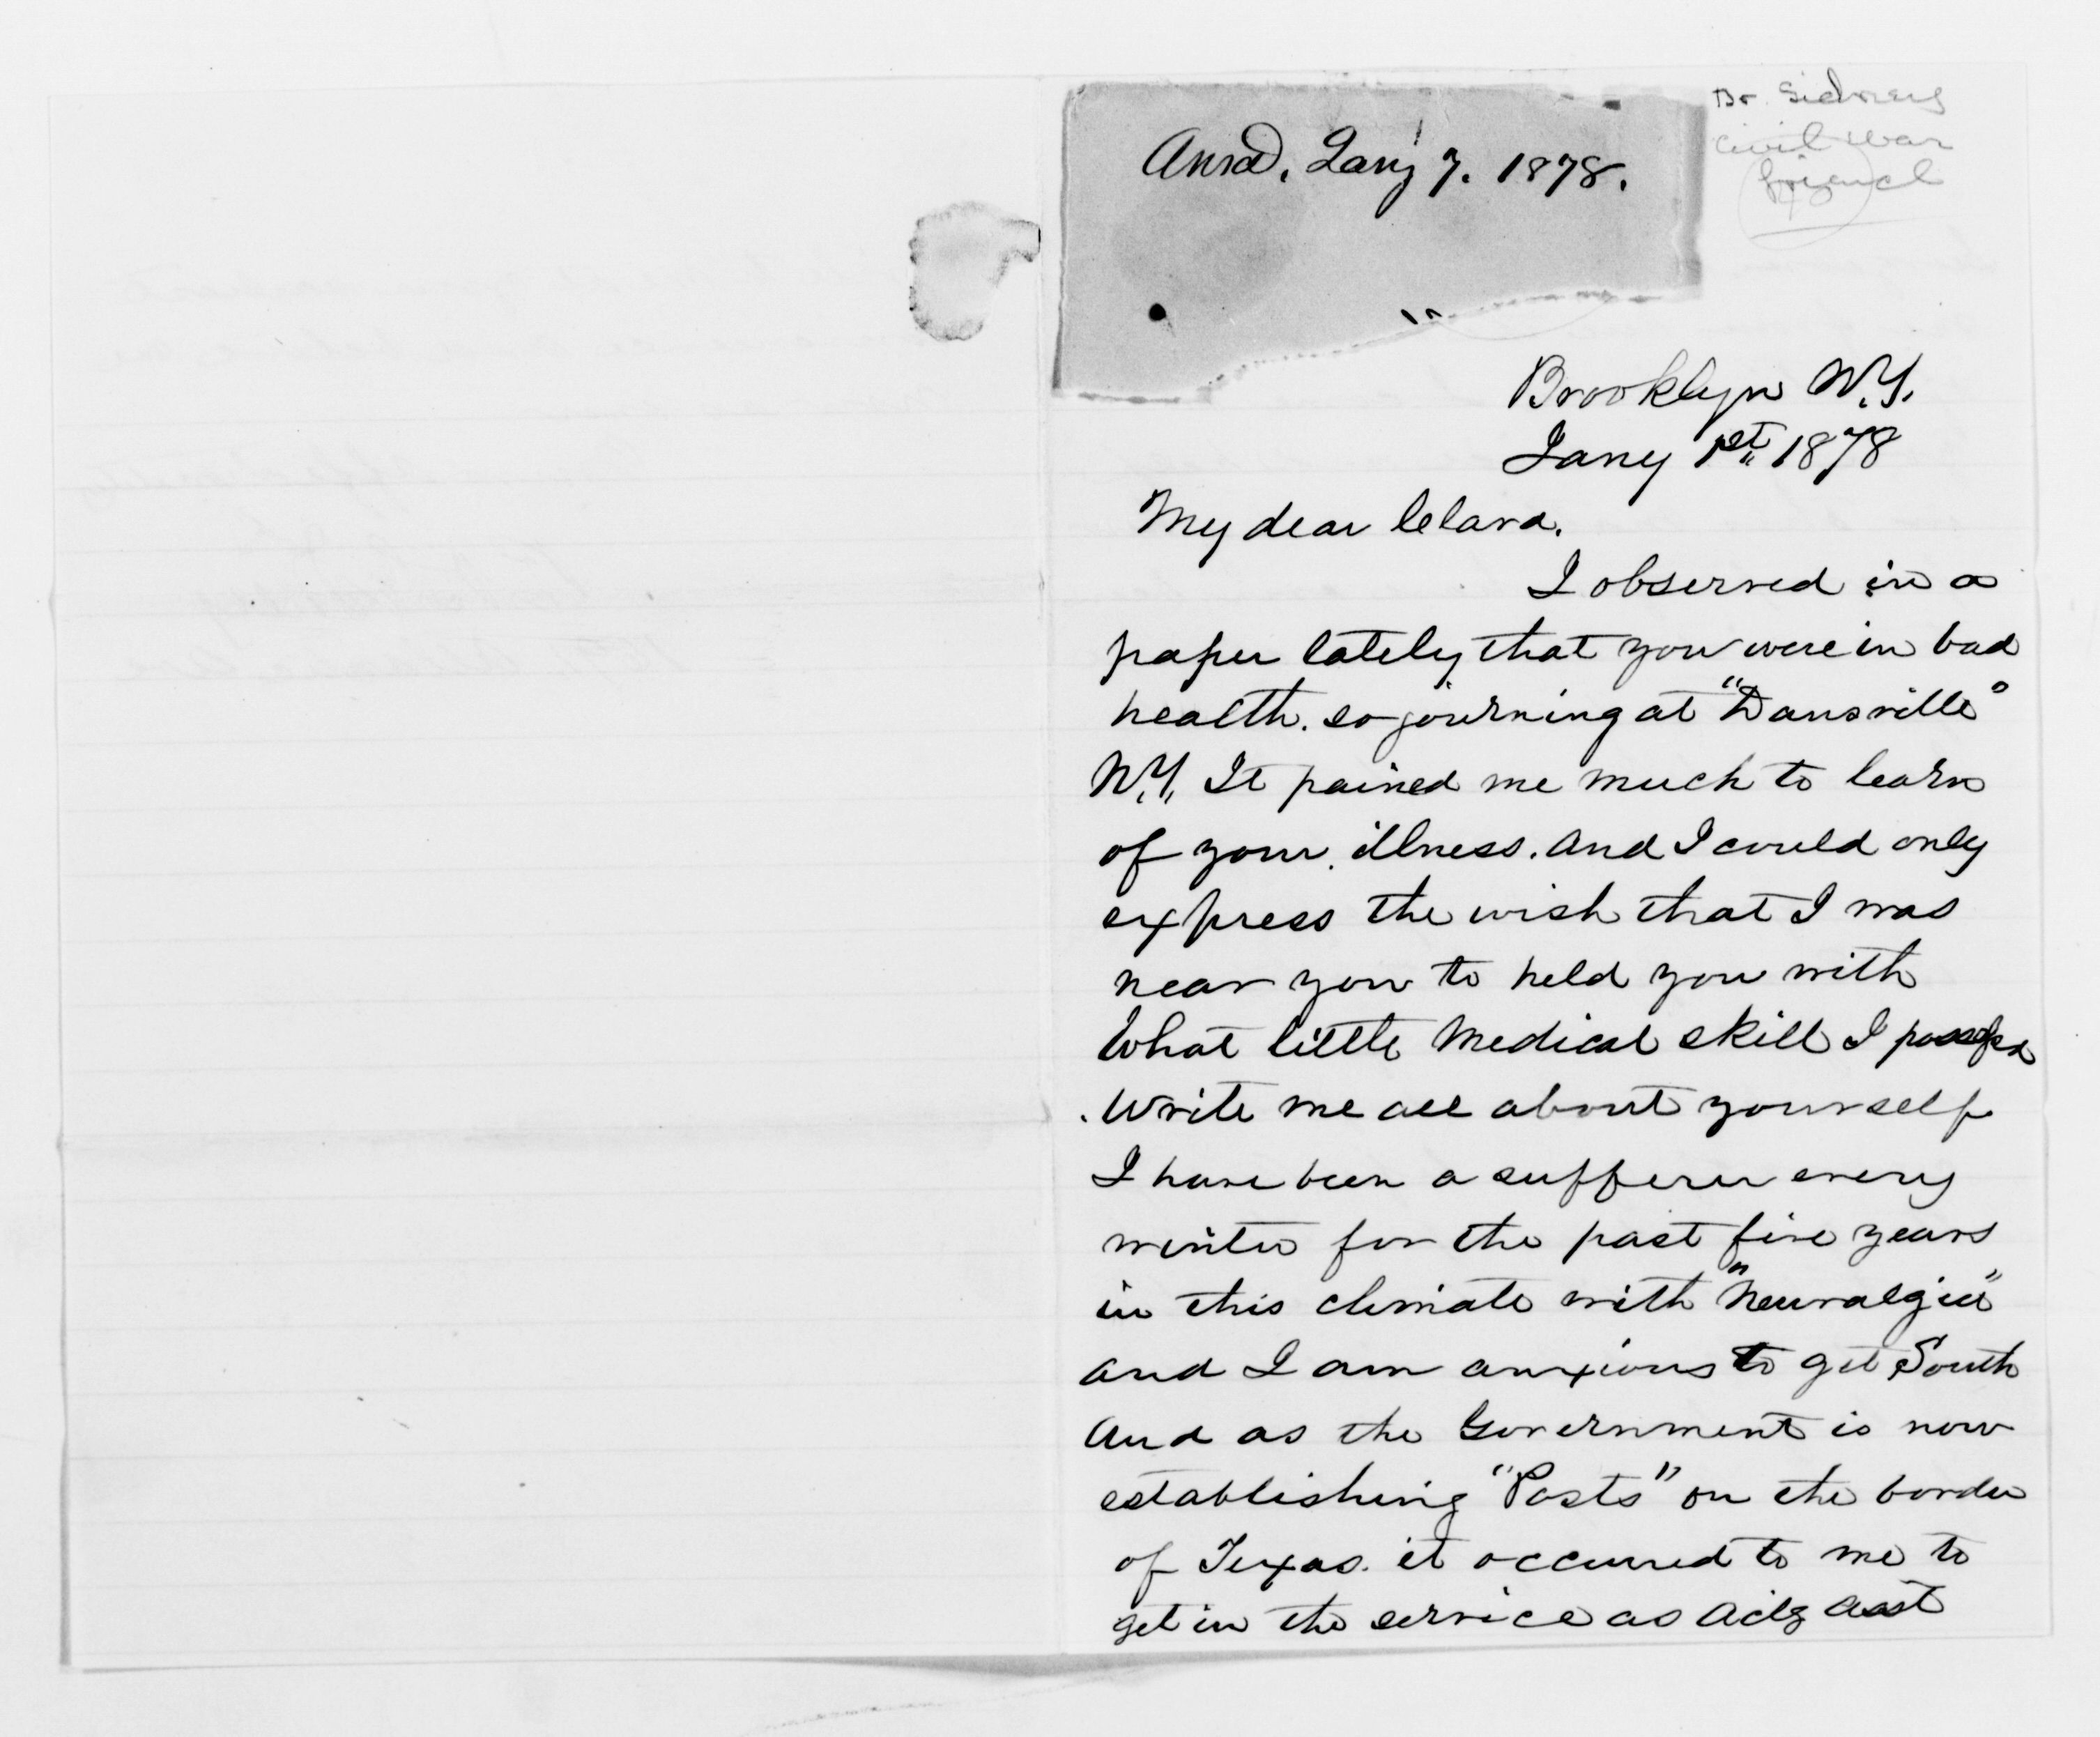 Ansd, Jany 7. 1878.
Dr. Sidney
Civil War
friend
Brooklyn N.Y.
Jany 1st 1878
My dear Clara.
I observed in a
paper lately that you were in bad
health. sojourning at "Dansville"
N.Y. It pained me much to learn
of your illness. And I could only
express the wish that I was
near you to held you with
What little Medical skill I possessed
. Write me all about yourself
I have been a sufferer every
winter for the past five years
in this climate with "Neuralgia"
and I am anxious to get South
And as the Government is now
establishing "Posts" on the border
of Texas. it occurred to me to
get in the service as Actg Asst